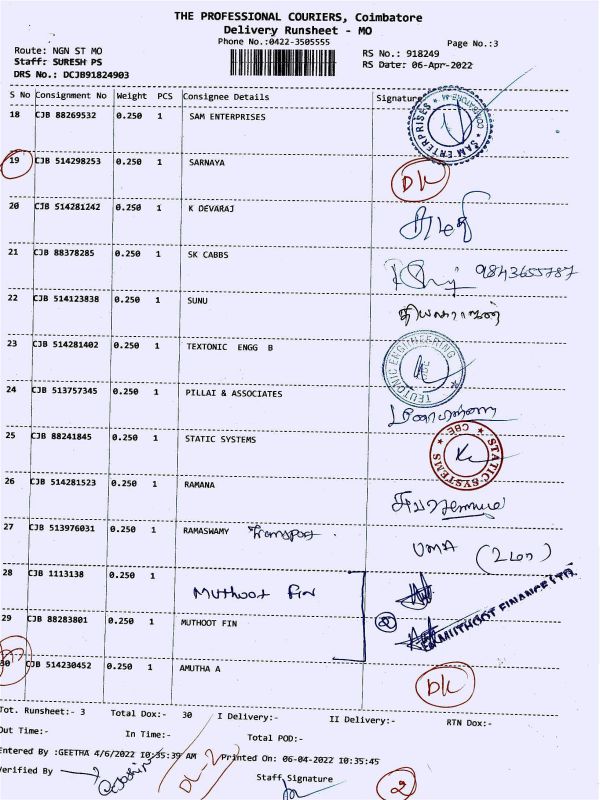 THE PROFESSIONAL COURIERS, Coimbatore
Delivery Runsheet - MO
Phone No.:0422-3505555
Page No.:3
Route: NGN ST MO
RS No.: 918249
Staff: SURESH PS
RS Date: 06-Apr-2022
DRS No.: DCJB91824903
S No Consignment No Weight PCS Consignee Details Signature
18 CJB 88269532 0.250 1 SAM ENTERPRISES SAM ENTERPRISES
19 CJB 514298253 0.250 1 SARNAYA DK
20 CJB 514281242 0.250 1 K DEVARAJ
21 CJB 88378285 0.250 1 SK CABBS 9843655787
22 CJB 514123838 0.250 1 SUNU
23 CJB 514281402 0.250 1 TEXTONIC ENGG B TEUTONIC ENGINEERING
24 CJB 513757345 0.250 1 PILLAI & ASSOCIATES
25 CJB 88241845 0.250 1 STATIC SYSTEMS STATIC SYSTEMS CBE
26 CJB 514281523 0.250 1 RAMANA
27 CJB 513976031 0.250 1 RAMASWAMY Transport UMA
28 CJB 1113138 0.250 1 Muthoot Fin
29 CJB 88283801 0.250 1 MUTHOOT FIN 2 MUTHOOT FINANCE LTD.
30 CJB 514230452 0.250 1 AMUTHA A DK
Tot. Runsheet:- 3 Total Dox:- 30 I Delivery:- II Delivery:- RTN Dox:-
Out Time:- In Time:- Total POD:-
Entered By :GEETHA 4/6/2022 10:35:39 AM Printed On: 06-04-2022 10:35:45
Verified By DL-2 Staff Signature 2